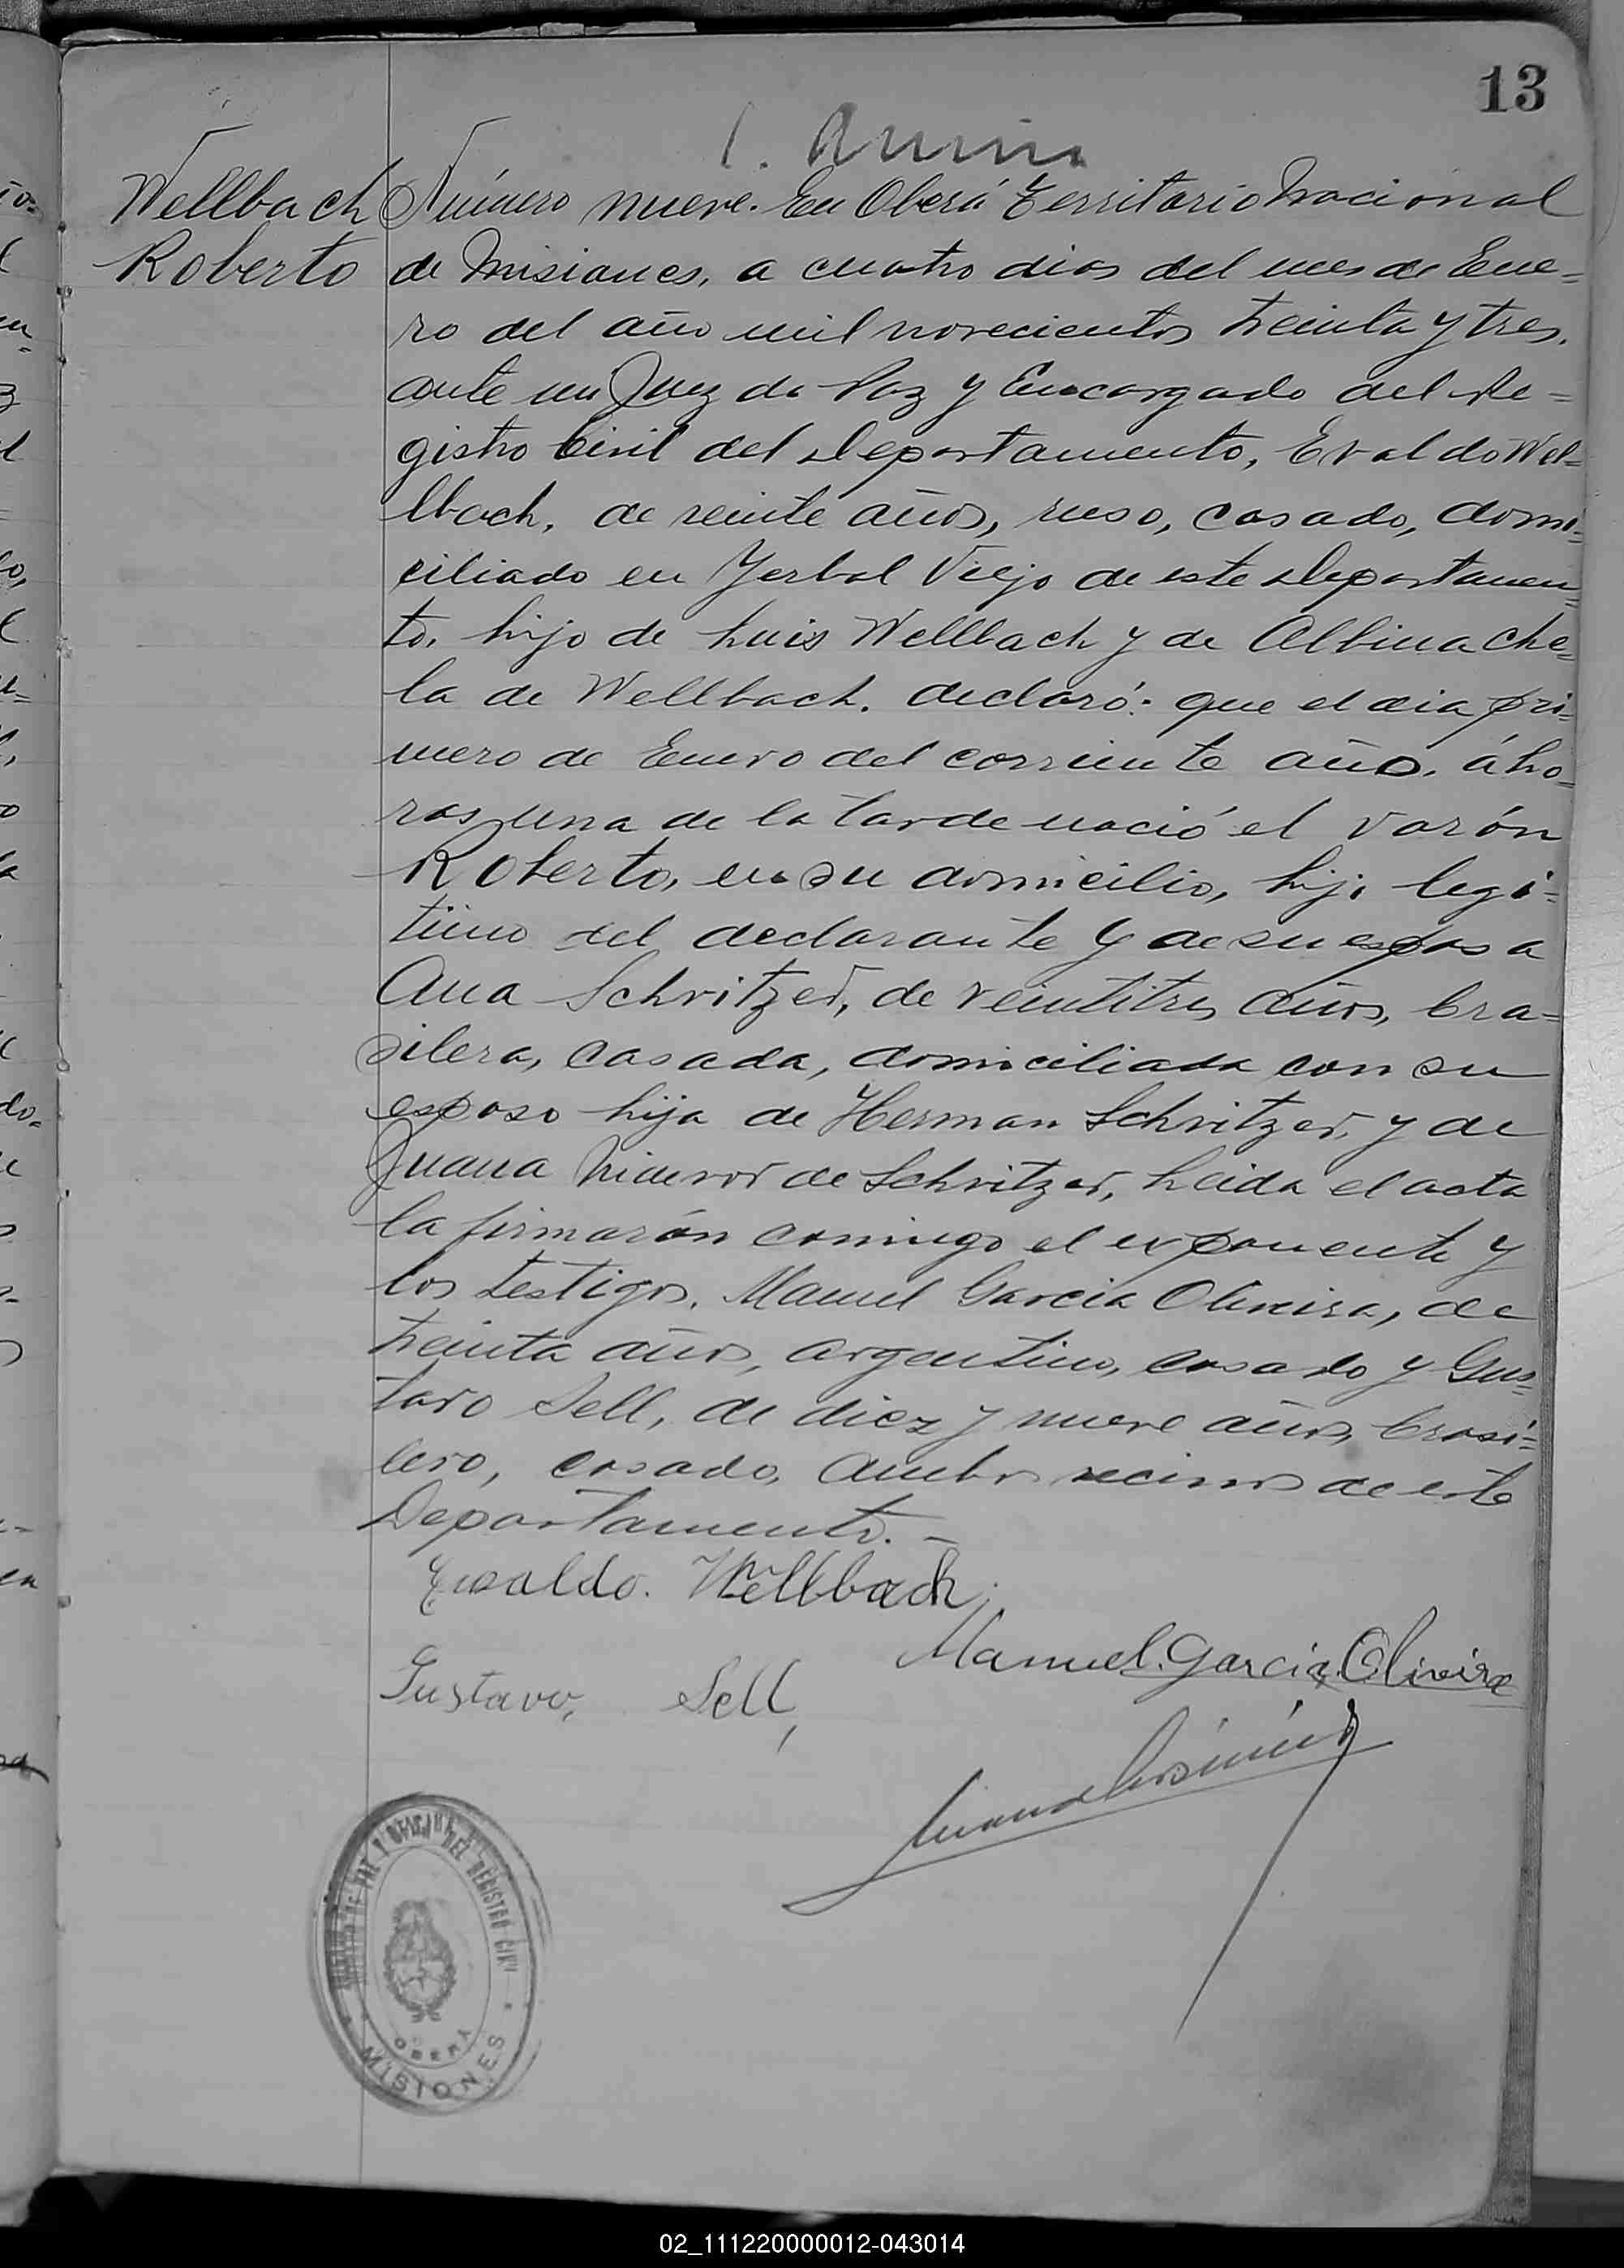 13
Wellbach
Roberto
Número nueve. En Oberá Territorio Nacional
de Misiones, a cuatro dias del mes de Ene=
ro del año mil novecientos treinta y tres.
ante mi Juez de Paz y Encargado del Re=
gistro Civil del Departamento, Evaldo Wel=
lbach, de veinte años, ruso, casado, domi=
ciliado en Yerbal Viejo de este Departamen=
to, hijo de Luis Wellbach y de Albina Che=
la de Wellbach. declaró: que el dia pri=
mero de Enero del corriente año, á ho=
ras una de la tarde nació el varón
Roberto, en su domicilio, hijo legi=
timo del declarante y de su esposa
Ana Schvitzer, de veintitres años, bra=
silera, casada, domiciliada con su
esposo hija de Herman Schvitzer, y de
Juana de Schvitzer, Leida el acta
la firmarón conmigo el exponente y
los testigos, Manuel Garcia Oliveira, de
treinta años, argentino, casado y Gus=
tavo Sell, de diez y nueve años, brasi=
lero, casado, ambos vecinos de este
Departamento.-
Evaldo. Wellbach.
Manuel. Garcia, Oliveira
Gustavo, Sell,
JUZGADO DE PAZ Y OFICINA DEL REGISTRO CIVIL
OBERÁ
MISIONES
02_111220000012-043014